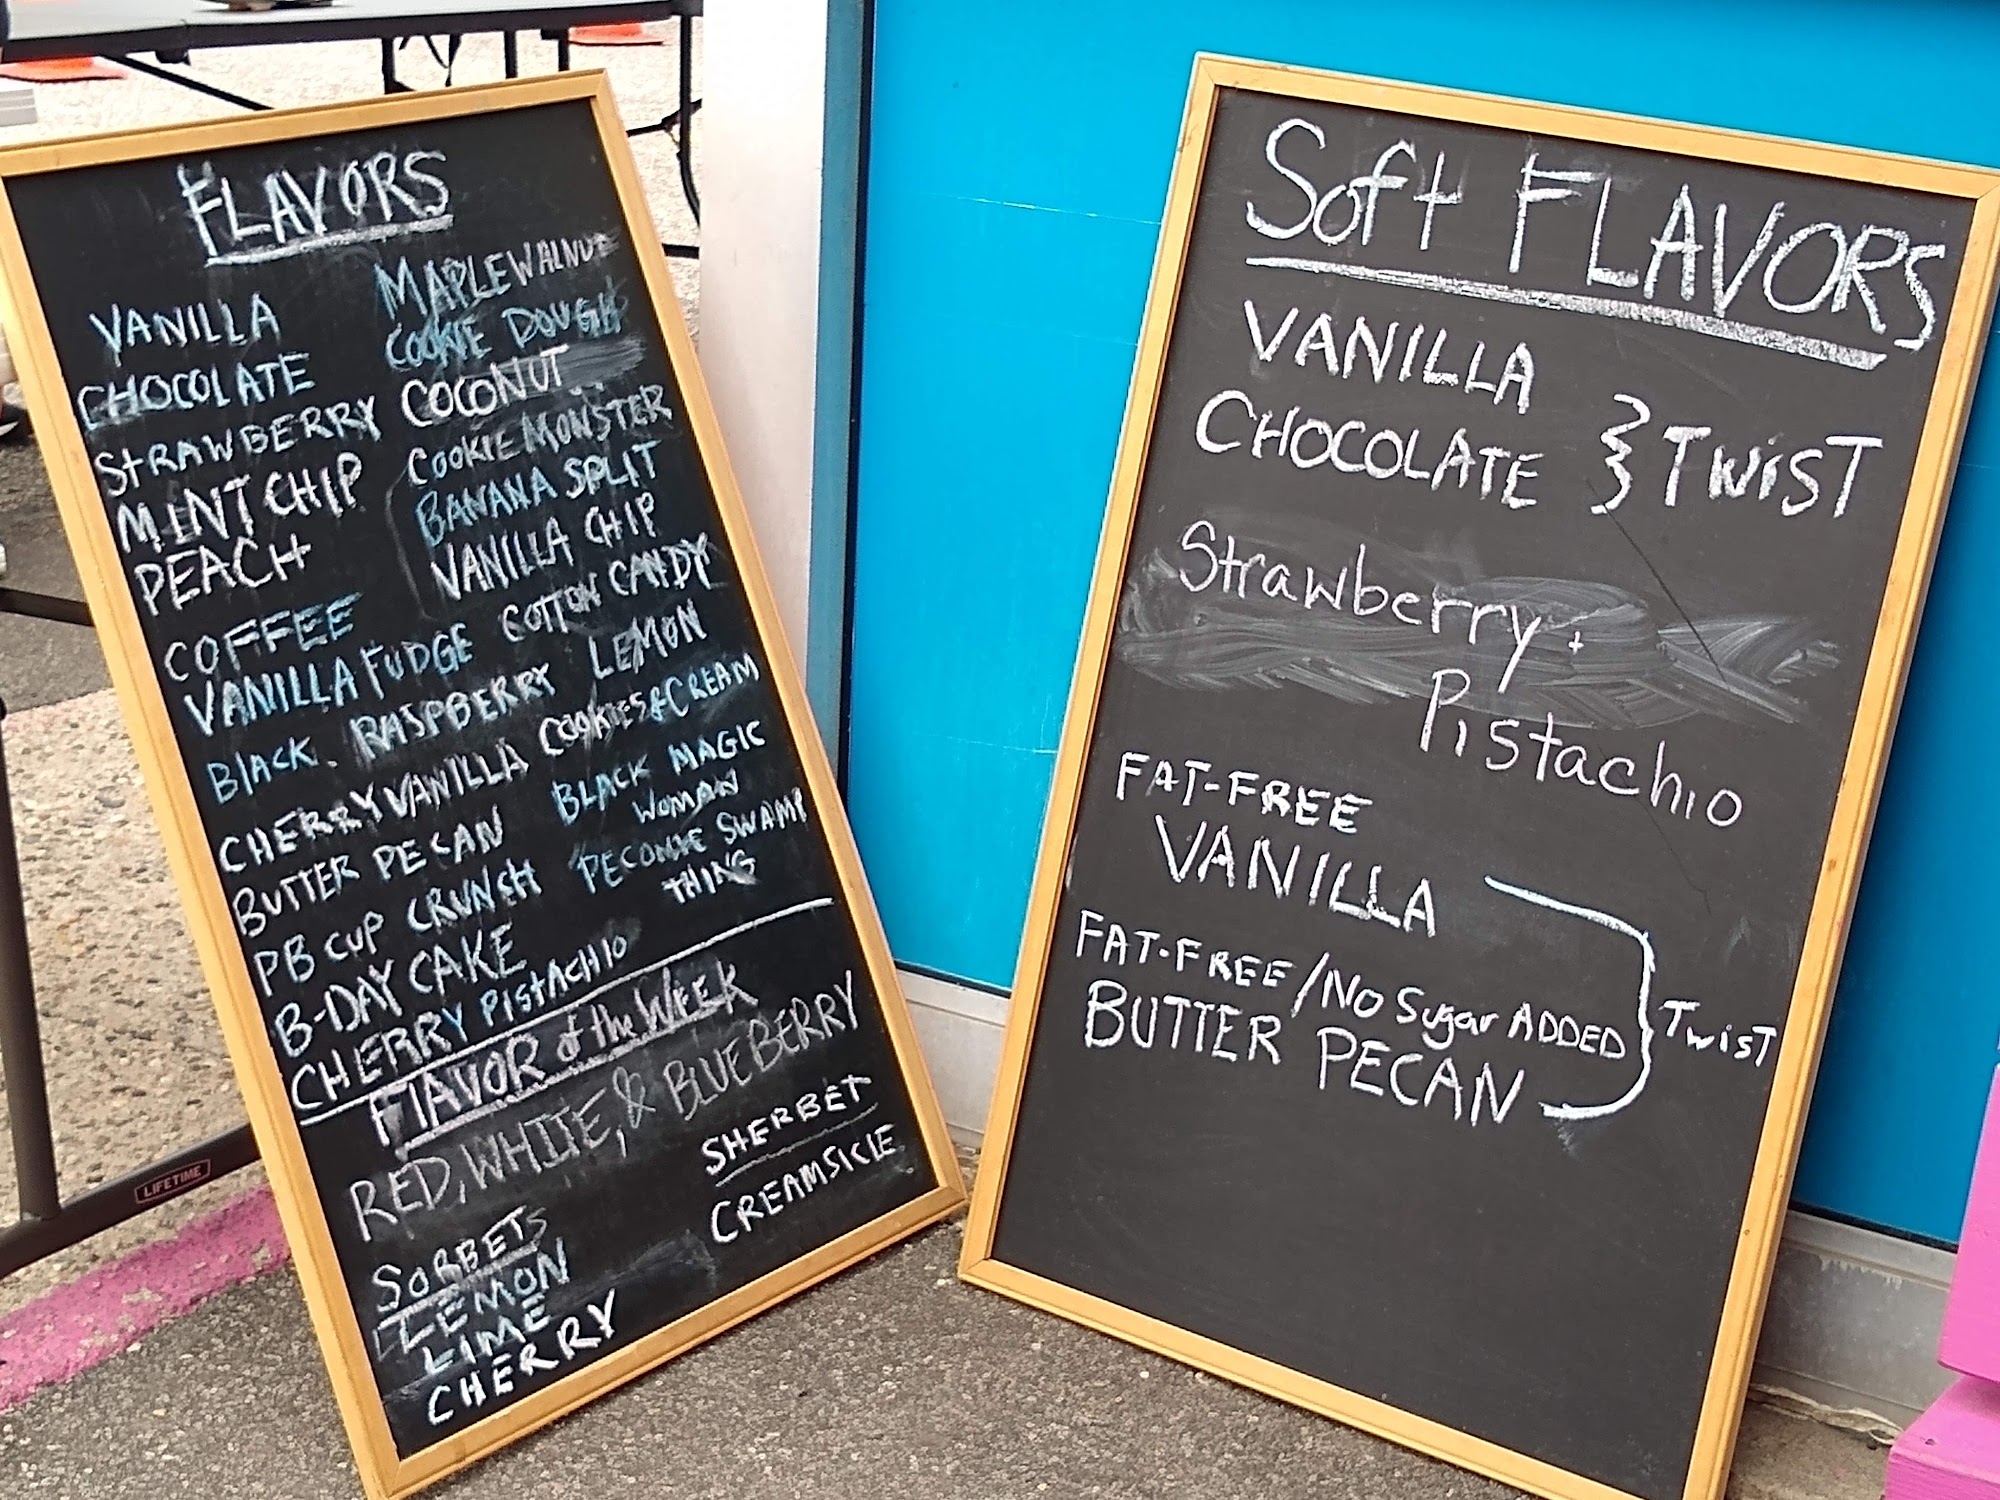 FLAVORS
VANILLA
CHOCOLATE
STRAWBERRY
MINT CHIP
PEACH
COFFEE
VANILLA FUDGE
BLACK. RASPBERRY
CHERRY VANILLA
BUTTER PECAN
PB CUP CRUNCH
B-DAY CAKE
CHERRY PISTACHIO
MAPLE WALNUT
COOKIE DOUGH
COCONUT
COOKIE MONSTER
BANANA SPLIT
VANILLA CHIP
COTTON CANDY
LEMON
COOKIES & CREAM
BLACK MAGIC
WOMAN
PECONIC SWAMP
THING
FLAVOR of the WEEK
RED, WHITE, & BLUEBERRY
SORBETS
LEMON
LIME
CHERRY
SHERBET
CREAMSICLE
LIFETIME
Soft FLAVORS
VANILLA
CHOCOLATE } TWiST
Strawberry +
Pistachio
FAT-FREE
VANILLA
FAT-FREE/No Sugar ADDED
BUTTER PECAN
TwisT